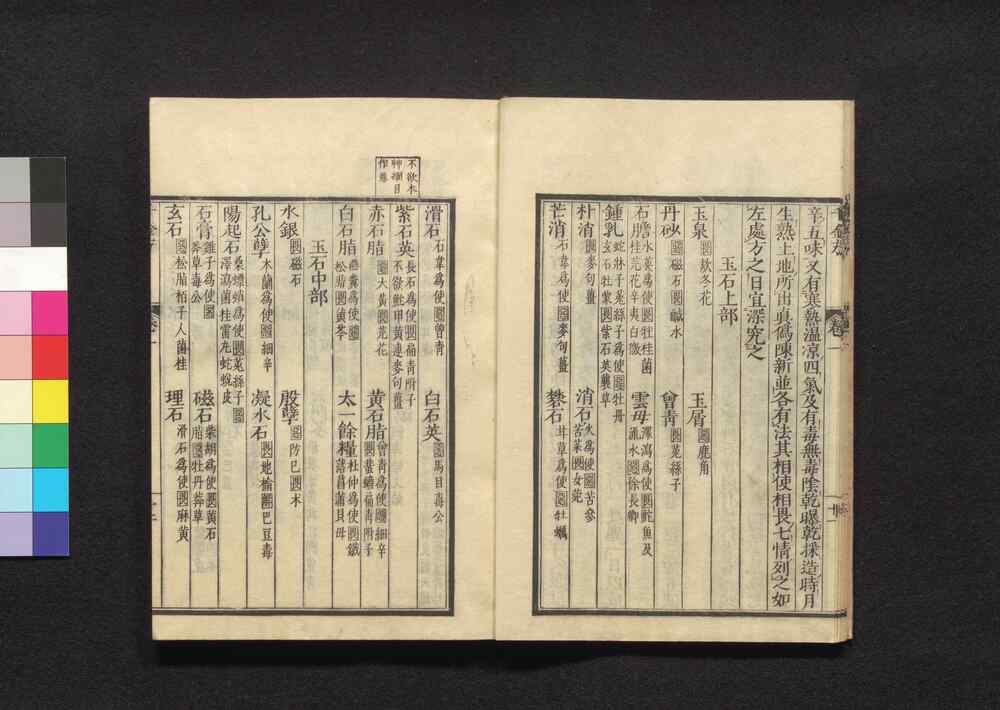 辛五味又有寒熱温凉四氣及有毒無毒陰乾曝乾採造時月
生熟土地所出真僞陳新並各有法其相使相畏七情列之如
左處方之日宜深究之
玉石上部
玉泉 畏款冬花
玉屑 惡鹿角
丹砂 惡磁石畏鹹水
曾青 畏菟絲子
石膽 水英爲使畏牡桂菌
桂芫花辛夷白
雲母 澤瀉爲使畏鮀魚及
流水惡徐長卿
鍾乳 蛇牀子菟絲子爲使惡牡丹
玄石牡蒙畏紫石英蘘草
朴消 畏麥句薑
消石 火爲使惡苦參
苦菜畏女菀
芒消 石韋爲使惡麥句薑
礬石 甘草爲使惡牡蠣
滑石 石韋爲使惡曾青
白石英 惡馬目毒公
紫石英 長石爲使畏扁青附子
不欲鮀甲黄連麥句薑
赤石脂 惡大黄畏芫花
黄石脂 曾青爲使惡細辛
畏蜚蠊扁青附子
白石脂 燕糞爲使惡
松脂畏黄芩
太一餘糧 杜仲爲使畏鐵
落菖蒲貝母
玉石中部
水銀 畏磁石
殷孽 惡防已畏木
孔公孽 木蘭爲使惡細辛
凝水石 畏地榆解巴豆毒
陽起石 桑螵蛸爲使畏菟絲子惡
澤瀉菌桂雷丸蛇蛻皮
石膏 雞子爲使惡
莽草毒公
磁石 柴胡爲使畏黄石
脂惡牡丹莽草
玄石 惡松脂栢子人菌桂
理石 滑石爲使畏麻黄
不欲本
艸綱目
作惡
卷一